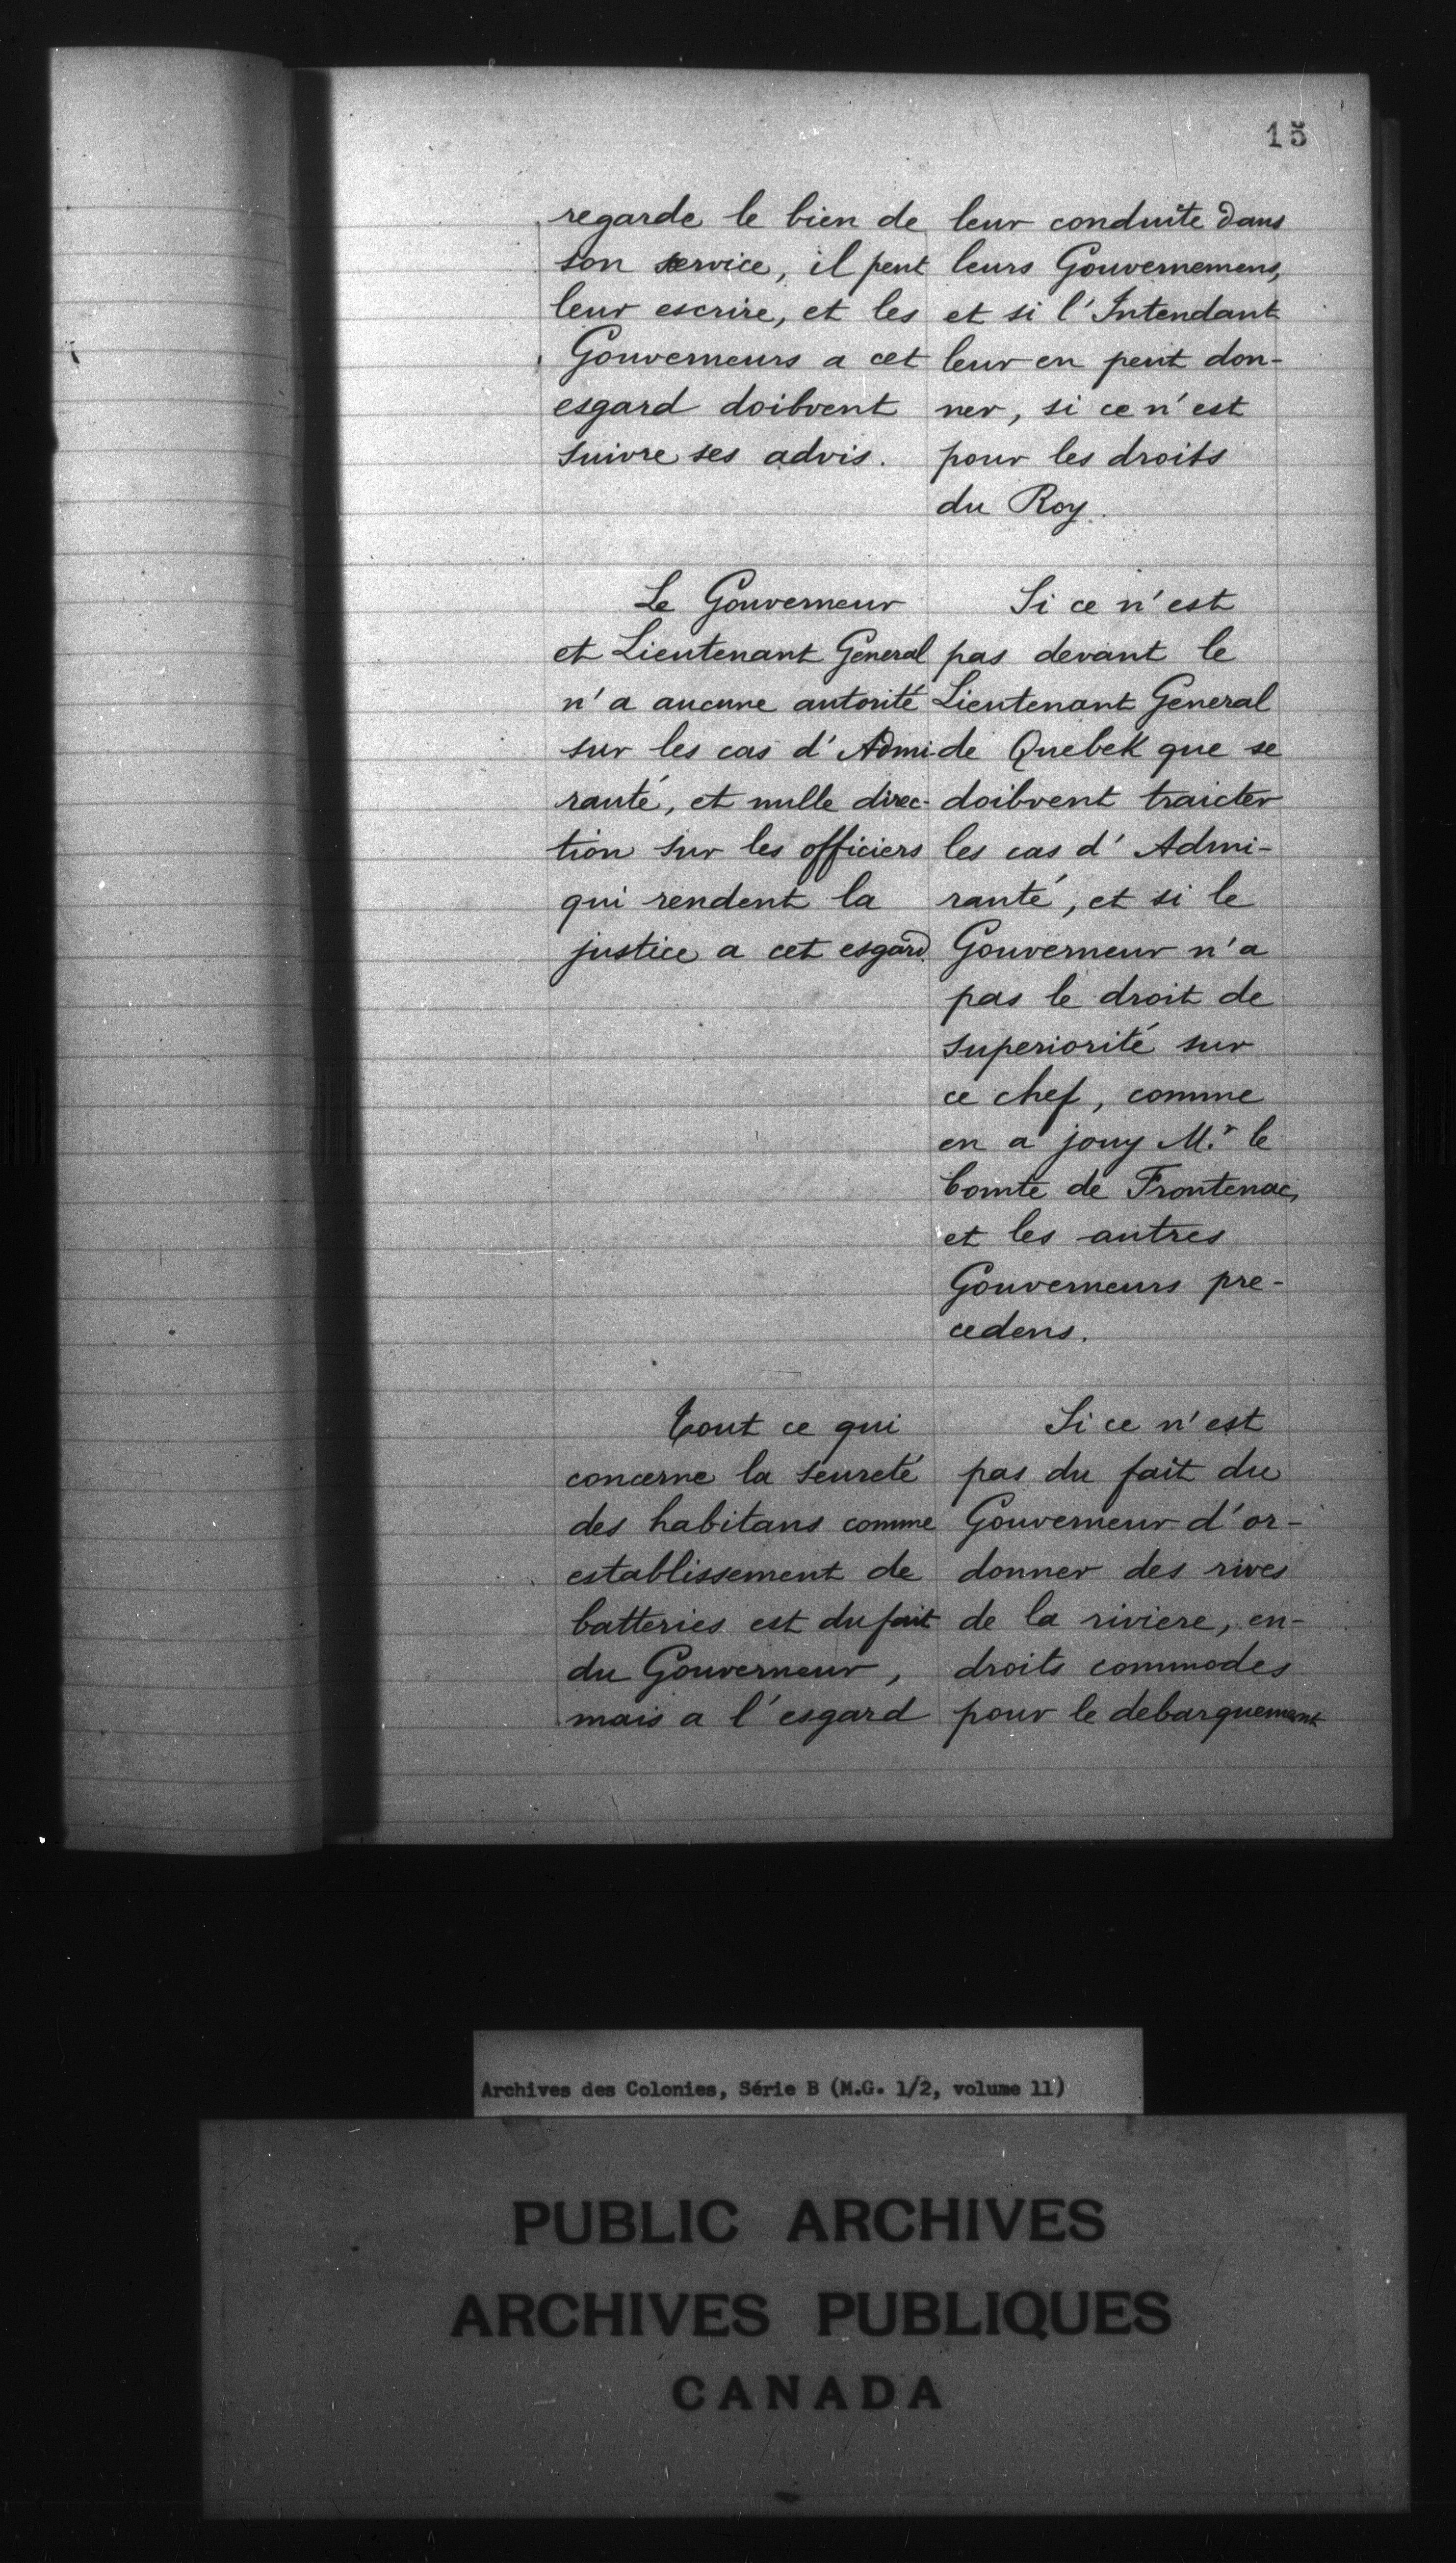 15
regarde le bien de
son service, il peut
leur escrire, et les
Gouverneurs a cet
esgard doibvent
suivre ses advis.
leur conduite dans
leurs Gouvernemens,
et si l'Intendant
leur en peut don-
ner, si ce n'est
pour les droits
du Roy.
Le Gouverneur
et Lieutenant General
n'a aucune autorité
sur les cas d'Admi-
rauté, et nulle direc-
tion sur les officiers
qui rendent la
justice a cet esgard.
Si ce n'est
pas devant le
Lieutenant General
de Quebek que se
doibvent traicter
les cas d'Admi-
rauté, et si le
Gouverneur n'a
pas le droit de
superiorité sur
ce chef, comme
en a jouy M.r le
Comte de Frontenac,
et les autres
Gouverneurs pre-
cedens.
Tout ce qui
concerne la seureté
des habitans comme
establissement de
batteries est du fait
du Gouverneur,
mais a l'esgard
Si ce n'est
pas du fait du
Gouverneur d'or-
donner des rives
de la riviere, en-
droits commodes
pour le debarquement
Archives des Colonies, Série B (M.G. 1/2, volume 11)
PUBLIC ARCHIVES
ARCHIVES PUBLIQUES
CANADA